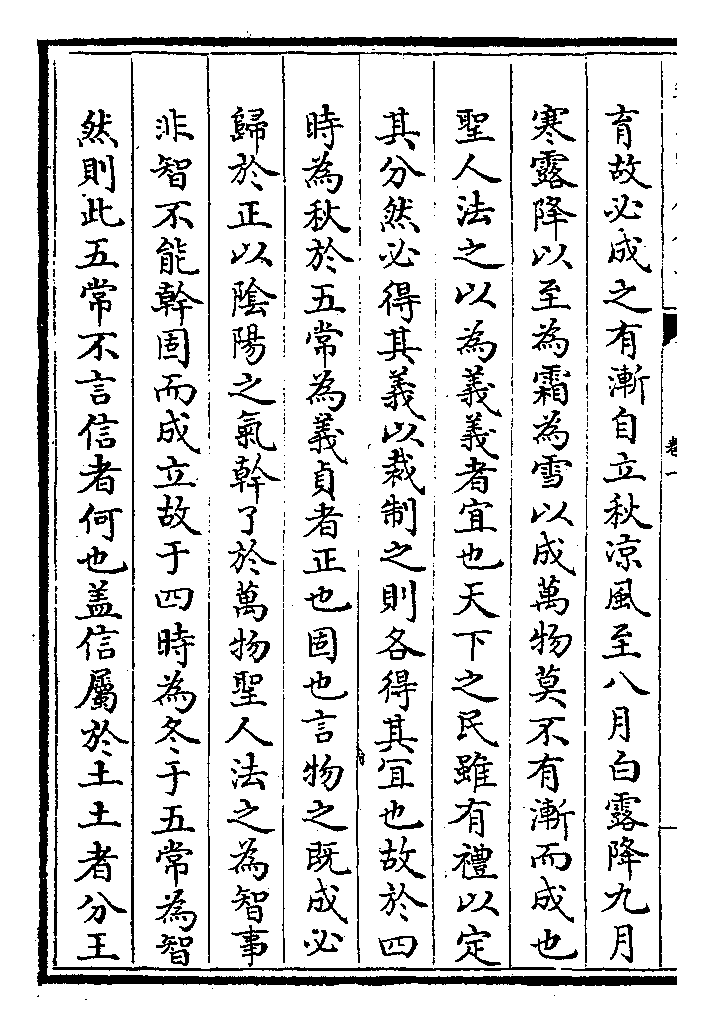 育故必成之有漸自立秋涼風至八月白露降九月
寒露降以至為霜為雪以成萬物莫不有漸而成也
聖人法之以為義義者宜也天下之民雖有禮以定
其分然必得其義以裁制之則各得其宜也故於四
時為秋於五常為義貞者正也固也言物之既成必
歸於正以陰陽之氣幹了於萬物聖人法之為智事
非智不能幹固而成立故于四時為冬于五常為智
然則此五常不言信者何也盖信屬於土土者分王
卷一